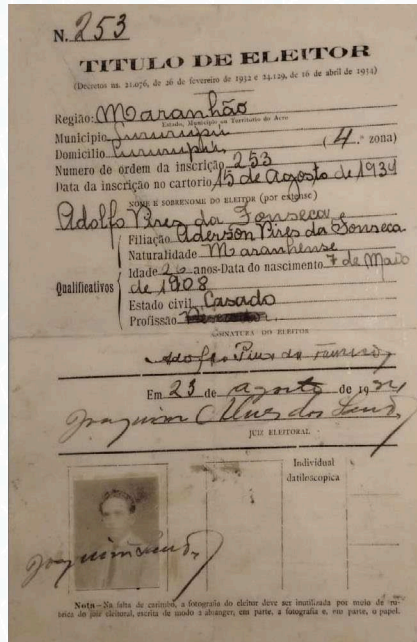 N. 253
TITULO DE ELEITOR
(Decretos ns. 21.076, de 26 de fevereiro de 1932 e 24.129, de 16 de abril de 1934)
Região: Maranhão
Estado, Municipio ou Territorio do Acre
Municipio Cururupú
Domicilio Cururupú (4.ª zona)
Numero de ordem da inscrição 253
Data da inscrição no cartorio 15 de Agosto de 1934
NOME E SOBRENOME DO ELEITOR (por extenso)
Adolfo Pires da Fonseca
Filiação Aderson Pires da Fonseca
Naturalidade Maranhense
Idade 26 anos-Data do nascimento 7 de Maio
Qualificativos de 1908
Estado civil Casado
Profissão
ASSINATURA DO ELEITOR
Adolfo Pires da Fonseca
Em 23 de agosto de 1934
Joaquim Alves dos Santos
JUIZ ELEITORAL
Individual
datiloscopica
Joaquim Santos
Nota—Na falta de carimbo, a fotografia do eleitor deve ser inutilizada por meio de rubrica do juiz eleitoral, escrita de modo a abranger, em parte, a fotografia e, em parte, o papel.